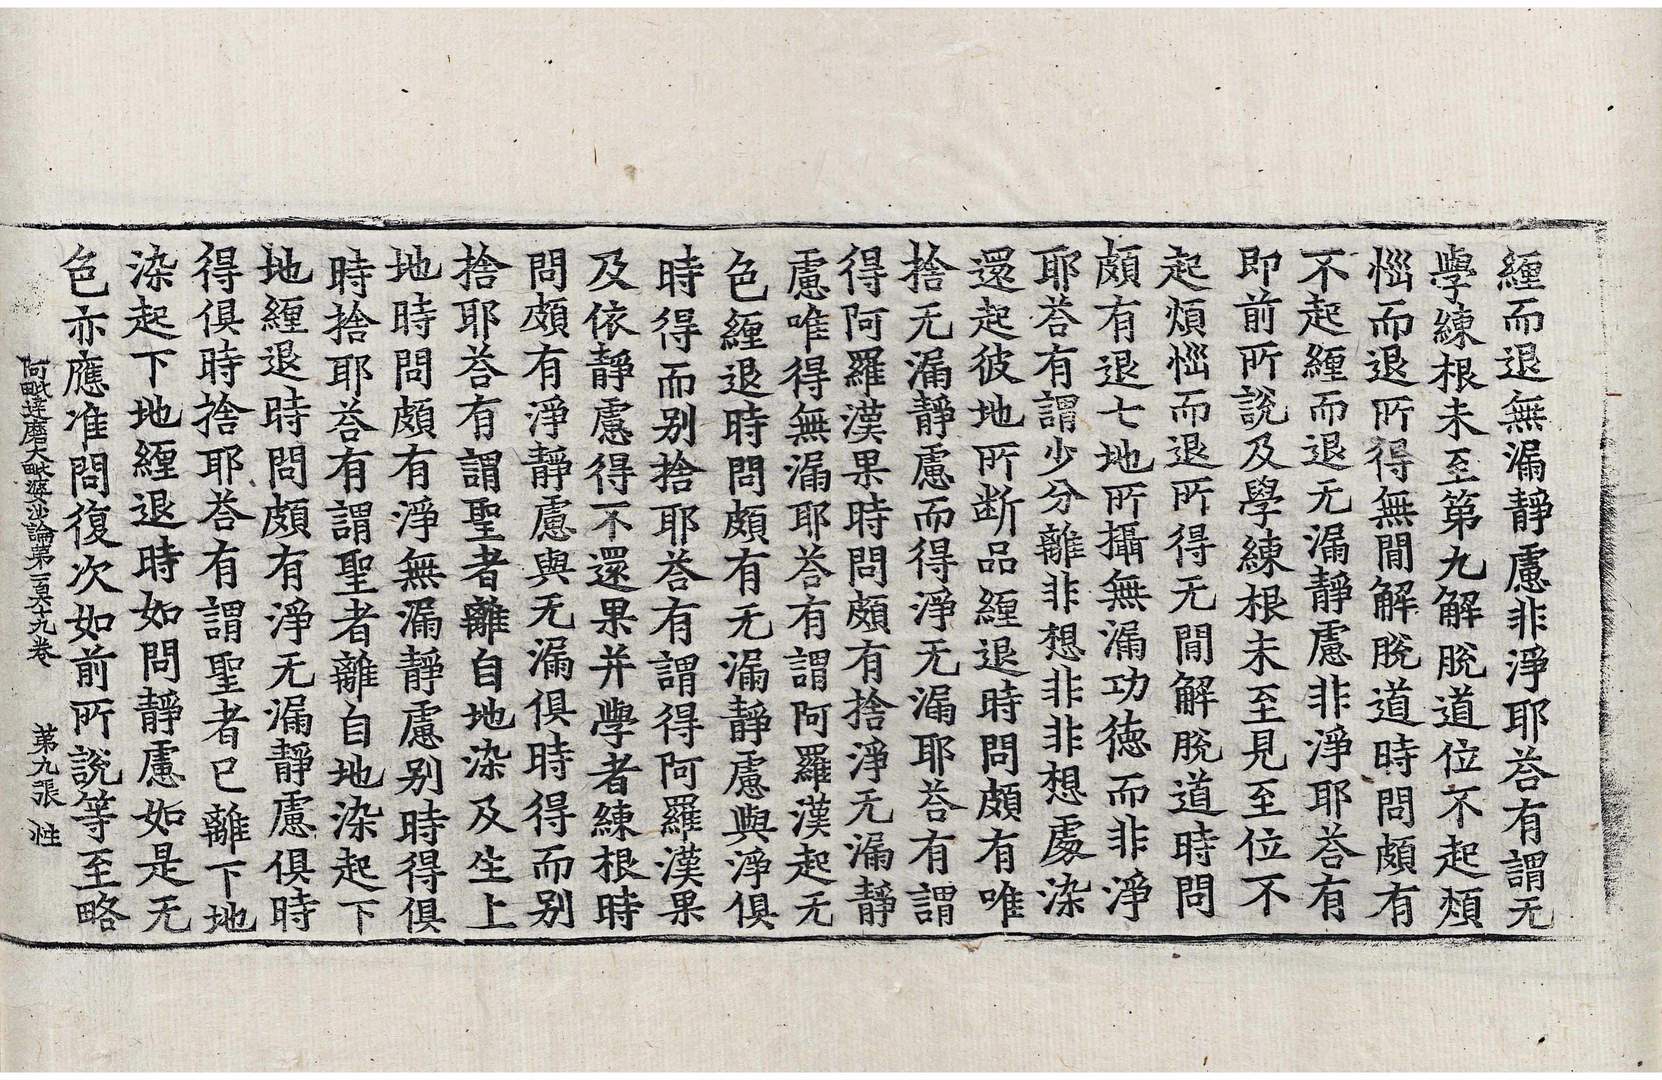 纏而退無漏靜慮非淨耶荅有謂无
學練根未至第九解脫道位不起煩
惱而退所得無閒解脫道時問頗有
不起纏而退无漏靜慮非淨耶荅有
即前所說及學練根未至見至位不
起煩惱而退所得无間解脫道時問
頗有退七地所攝無漏功德而非淨
耶荅有謂少分離非想非非想處染
還起彼地所斷品纏退時問頗有唯
捨无漏靜慮而得淨无漏耶荅有謂
得阿羅漢果時問頗有捨淨无漏靜
慮唯得無漏耶荅有謂阿羅漢起无
色纏退時問頗有无漏靜慮與淨俱
時得而別捨耶荅有謂得阿羅漢果
及依靜慮得不還果并學者練根時
問頗有淨靜慮與无漏俱時得而別
捨耶荅有謂聖者離自地染及生上
地時問頗有淨無漏靜慮別時得俱
時捨耶荅有謂聖者離自地染起下
地纏退時問頗有淨无漏靜慮俱時
得俱時捨耶荅有謂聖者已離下地
染起下地纏退時如問靜慮如是无
色亦應准問復次如前所說等至略
阿毗達磨大毗婆沙論第一百六十九卷 第九張 性